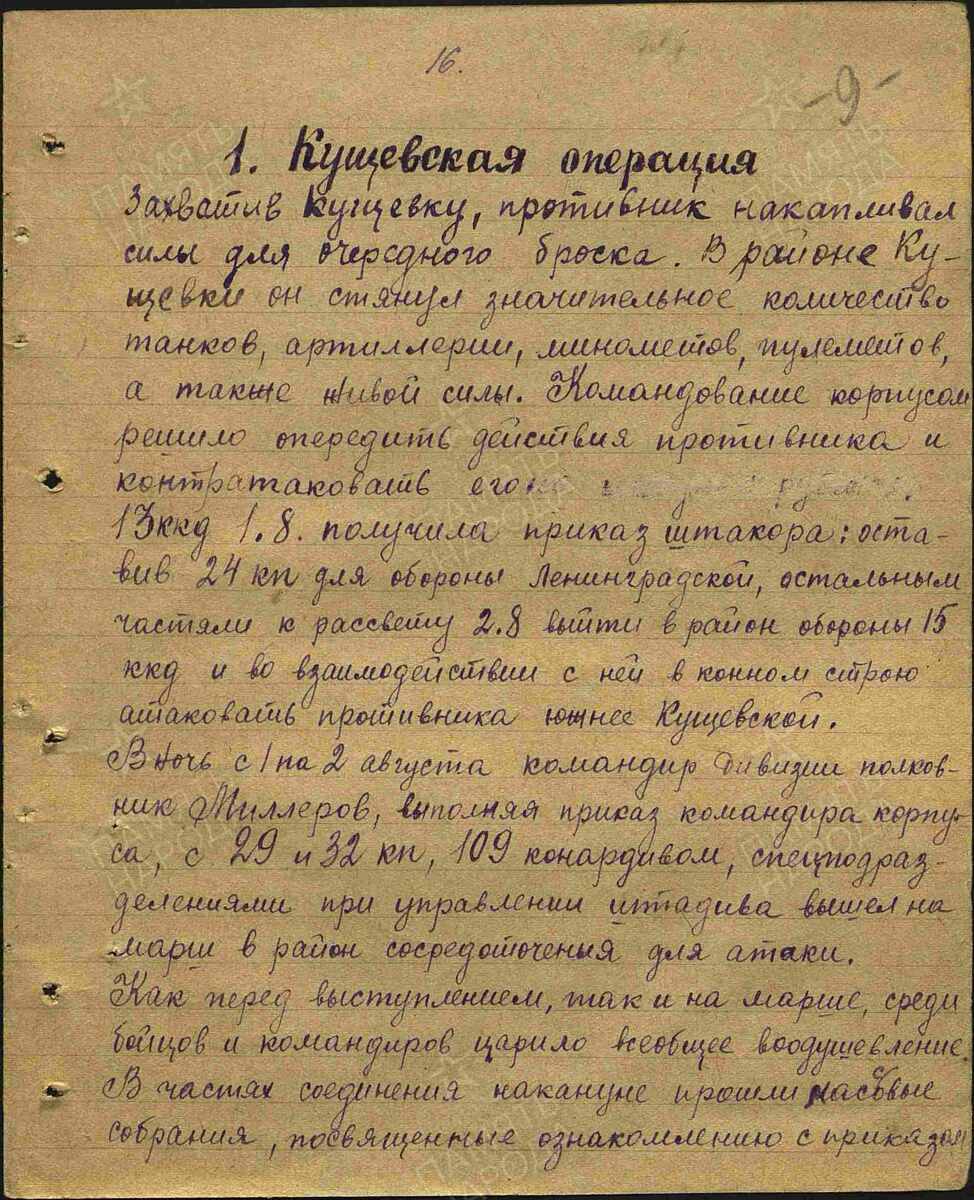 16.
-9-
1. Кущевская операция
Захватив Кущевку, противник накапливал
силы для очередного броска. В районе Ку-
щевки он стянул значительное количество
танков, артиллерии, минометов, пулеметов,
а также живой силы. Командование корпусом
решило опередить действия противника и
контратаковать его
13 ккд 1.8. получила приказ штакора: оста-
вив 24 кп для обороны Ленинградской, остальным
частями к рассвету 2.8 выйти в район обороны 15
ккд и во взаимодействии с ней в конном строю
атаковать противника южнее Кущевской.
В ночь с 1 по 2 августа командир дивизии полков-
ник Миллеров, выполняя приказ командира корпу-
са, с 29 и 32 кп, 109 конардивом, спецподраз-
делениями при управлении штадива вышел на
марш в район сосредоточения для атаки.
Как перед выступлением, так и на марше, среди
бойцов и командиров царило всеобщее воодушевление.
В частях соединения накануне прошли массовые
собрания, посвященные ознакомлению с приказом
ПАМЯТЬ НАРОДА